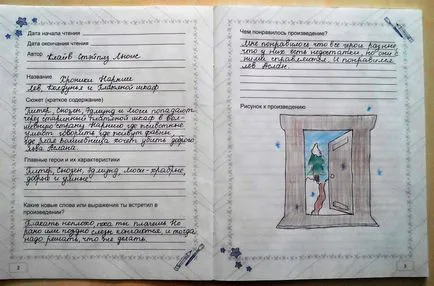 Дата начала чтения
Дата окончания чтения
Автор Клайв Стейплз Льюис
Название Хроники Нарнии
Лев, Колдунья и Платяной шкаф
Сюжет (краткое содержание)
Питер, Сьюзен, Эдмунд и Люси попадают
через старинный платяной шкаф в вол-
шебную страну Нарнию где животные
умеют говорить где живут фавны,
где злая волшебница хочет убить доброго
льва Аслана.
Главные герои и их характеристики
Питер, Сьюзен, Эдмунд Люси - храбрые,
добрые и умные.
Какие новые слова или выражения ты встретил в
произведении?
Плакать неплохо, пока ты плачешь. Но
рано или поздно слезы кончаются, и тогда
надо решать, что же делать.
2
Чем понравилось произведение?
Мне понравилось что все герои разные,
что у них есть недостатки, но они с
ними справляются. И понравился
лев Аслан.
Рисунок к произведению
3